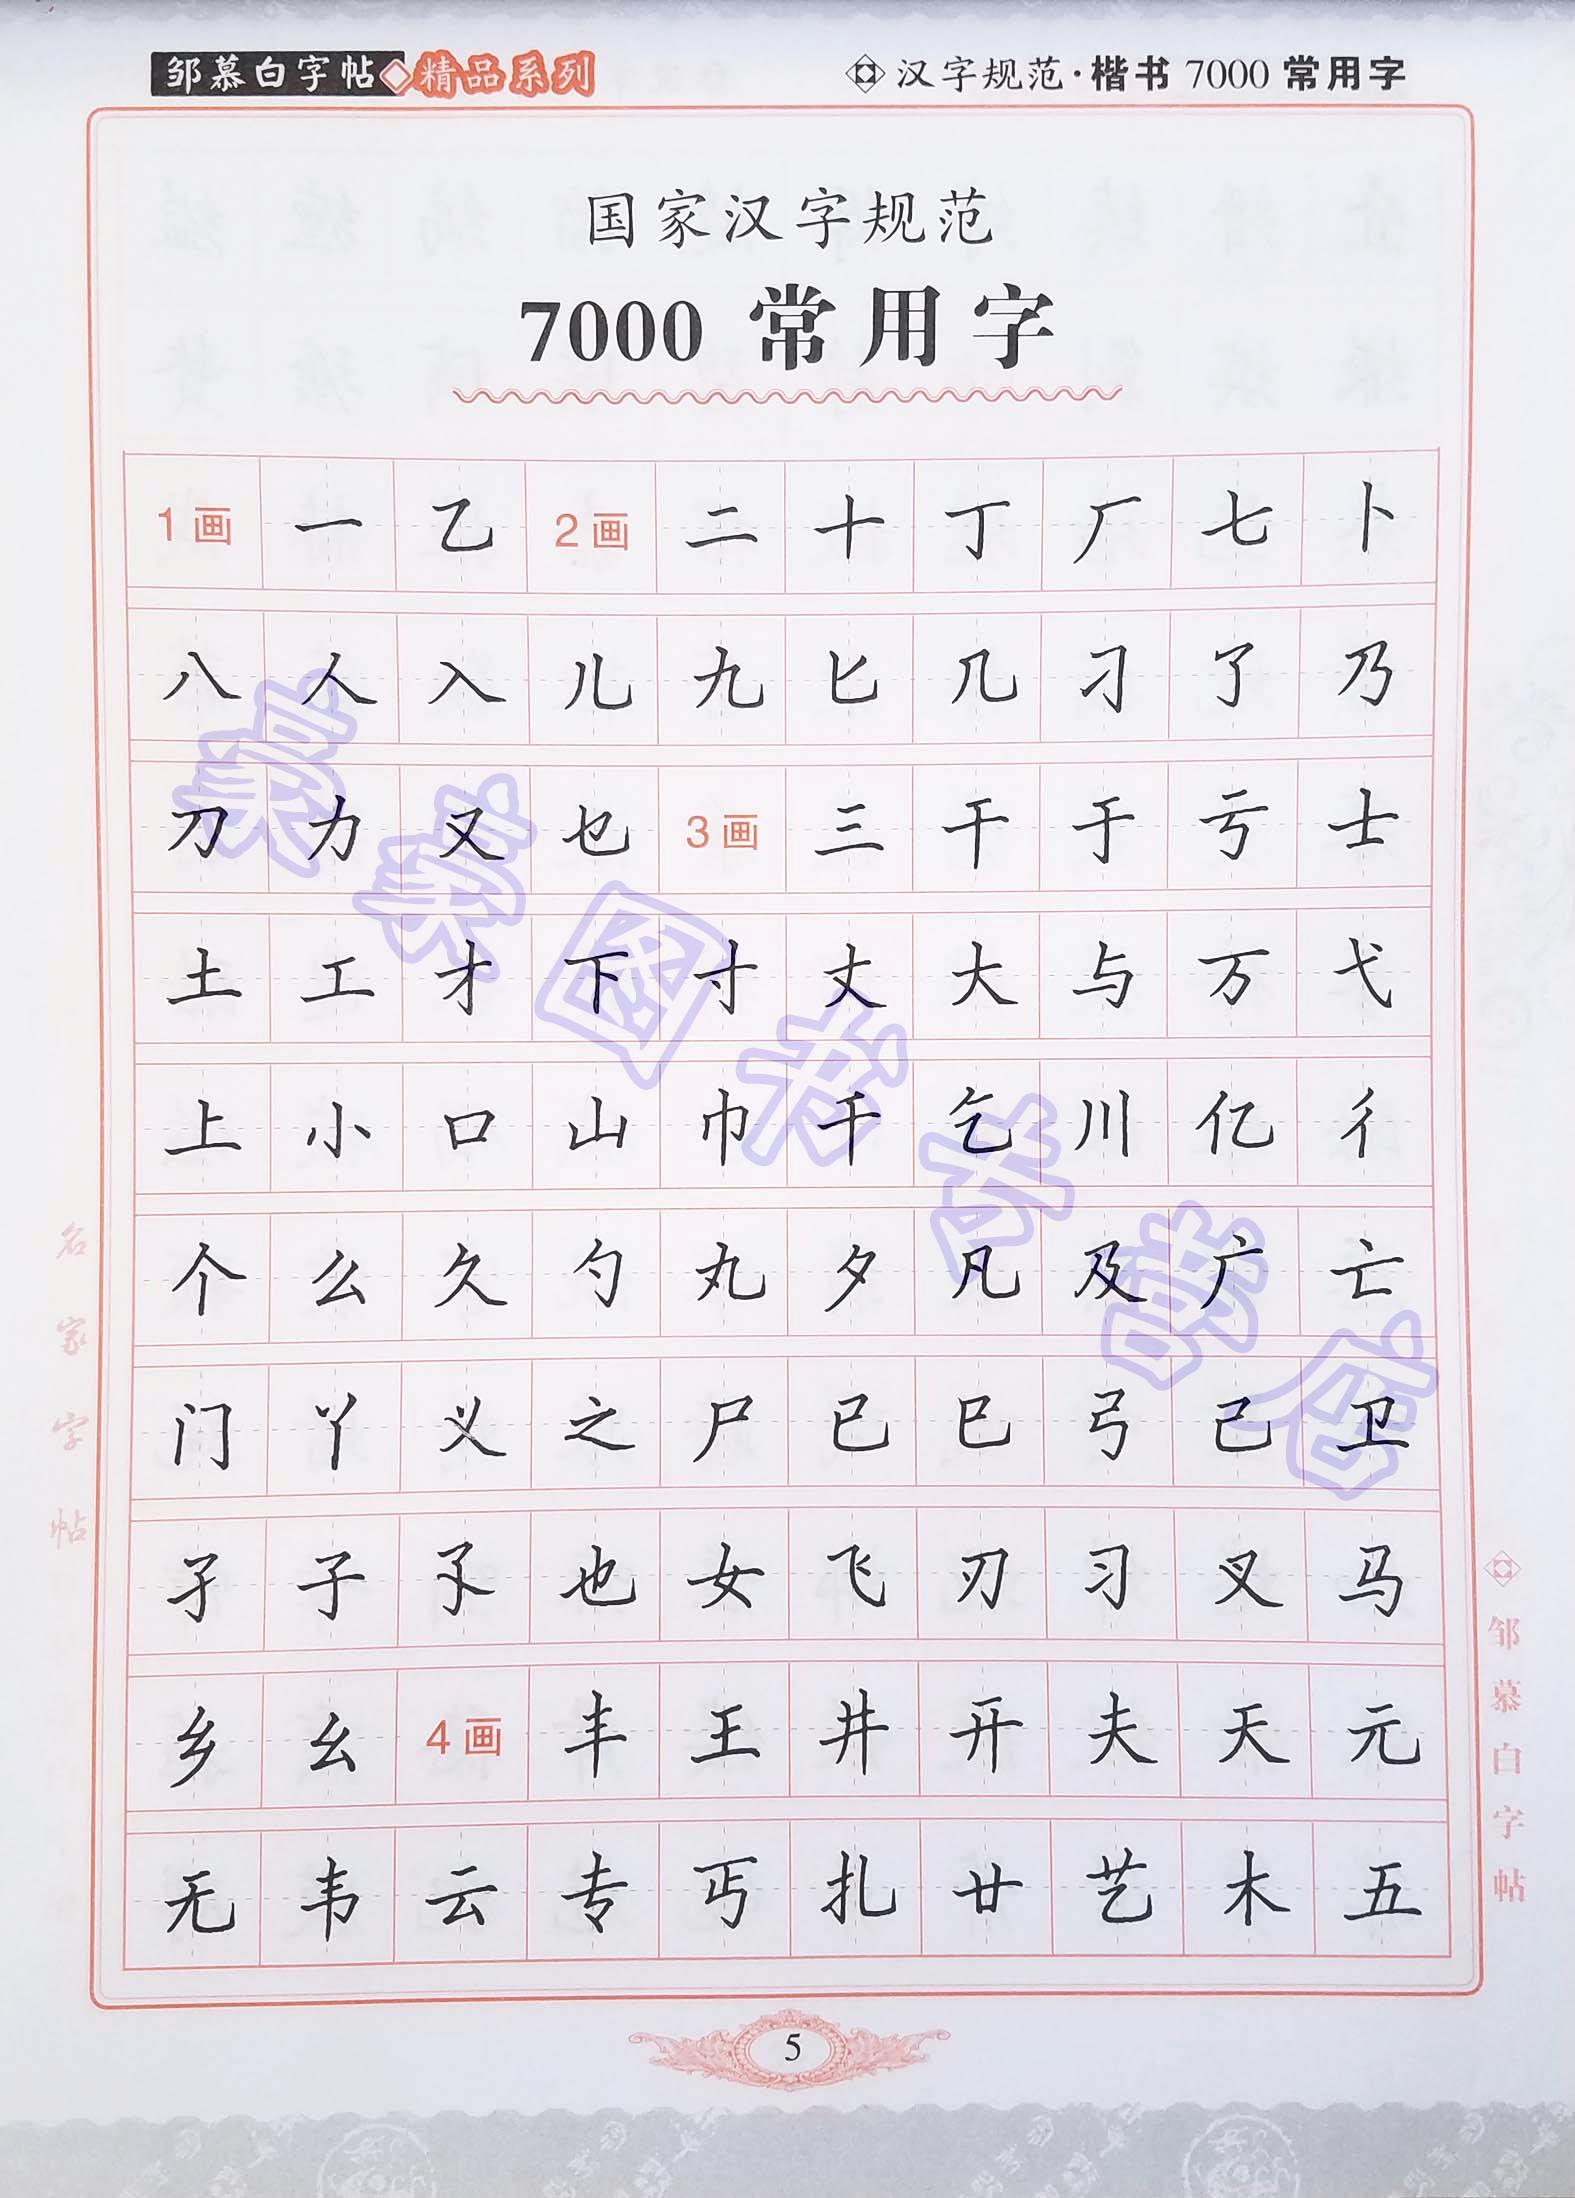 邹慕白字帖 精品系列
汉字规范·楷书 7000 常用字
国家汉字规范
7000 常用字
1画 一 乙 2画 二 十 丁 厂 七 卜
八 人 入 儿 九 匕 几 刁 了 乃
刀 力 又 乜 3画 三 干 于 亏 士
土 工 才 下 寸 丈 大 与 万 弋
上 小 口 山 巾 千 乞 川 亿 彳
个 么 久 勺 丸 夕 凡 及 广 亡
门 丫 义 之 尸 已 巳 弓 己 卫
孑 子 孓 也 女 飞 刃 习 叉 马
乡 幺 4画 丰 王 井 开 夫 天 元
无 韦 云 专 丐 扎 廿 艺 木 五
名家字帖
邹慕白字帖
5